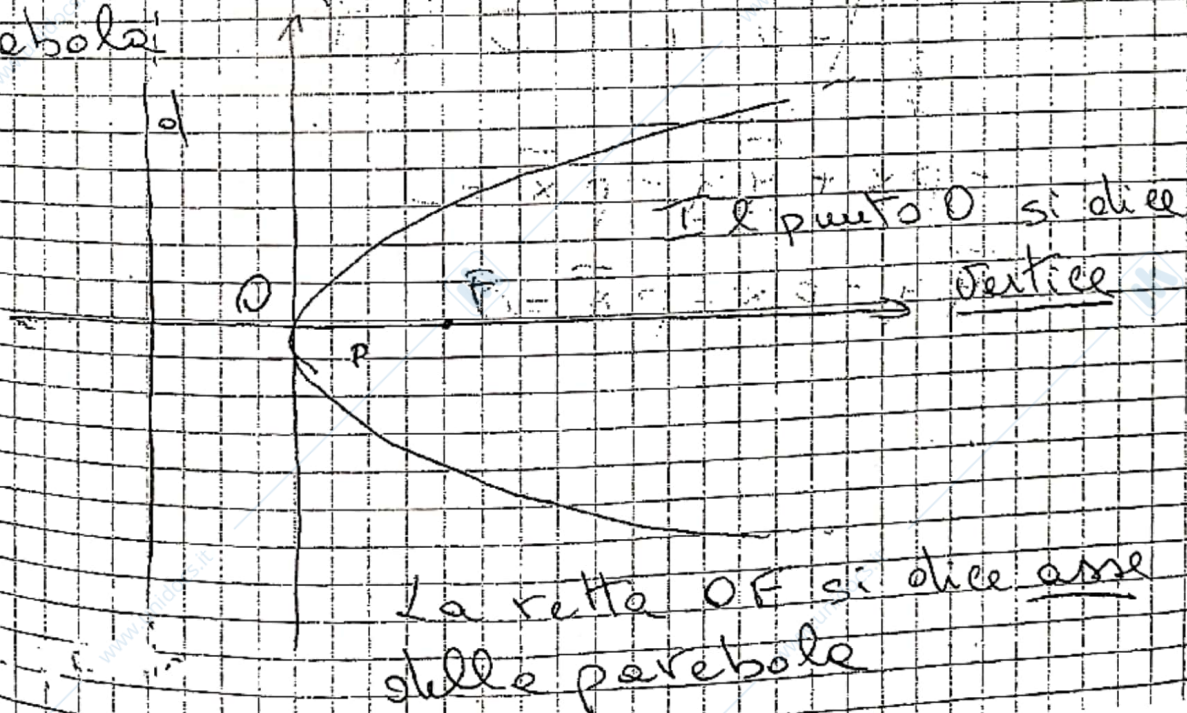 ebola:
d
Il punto O si dice
O F vertice
P
La retta OF si dice asse
della parabola